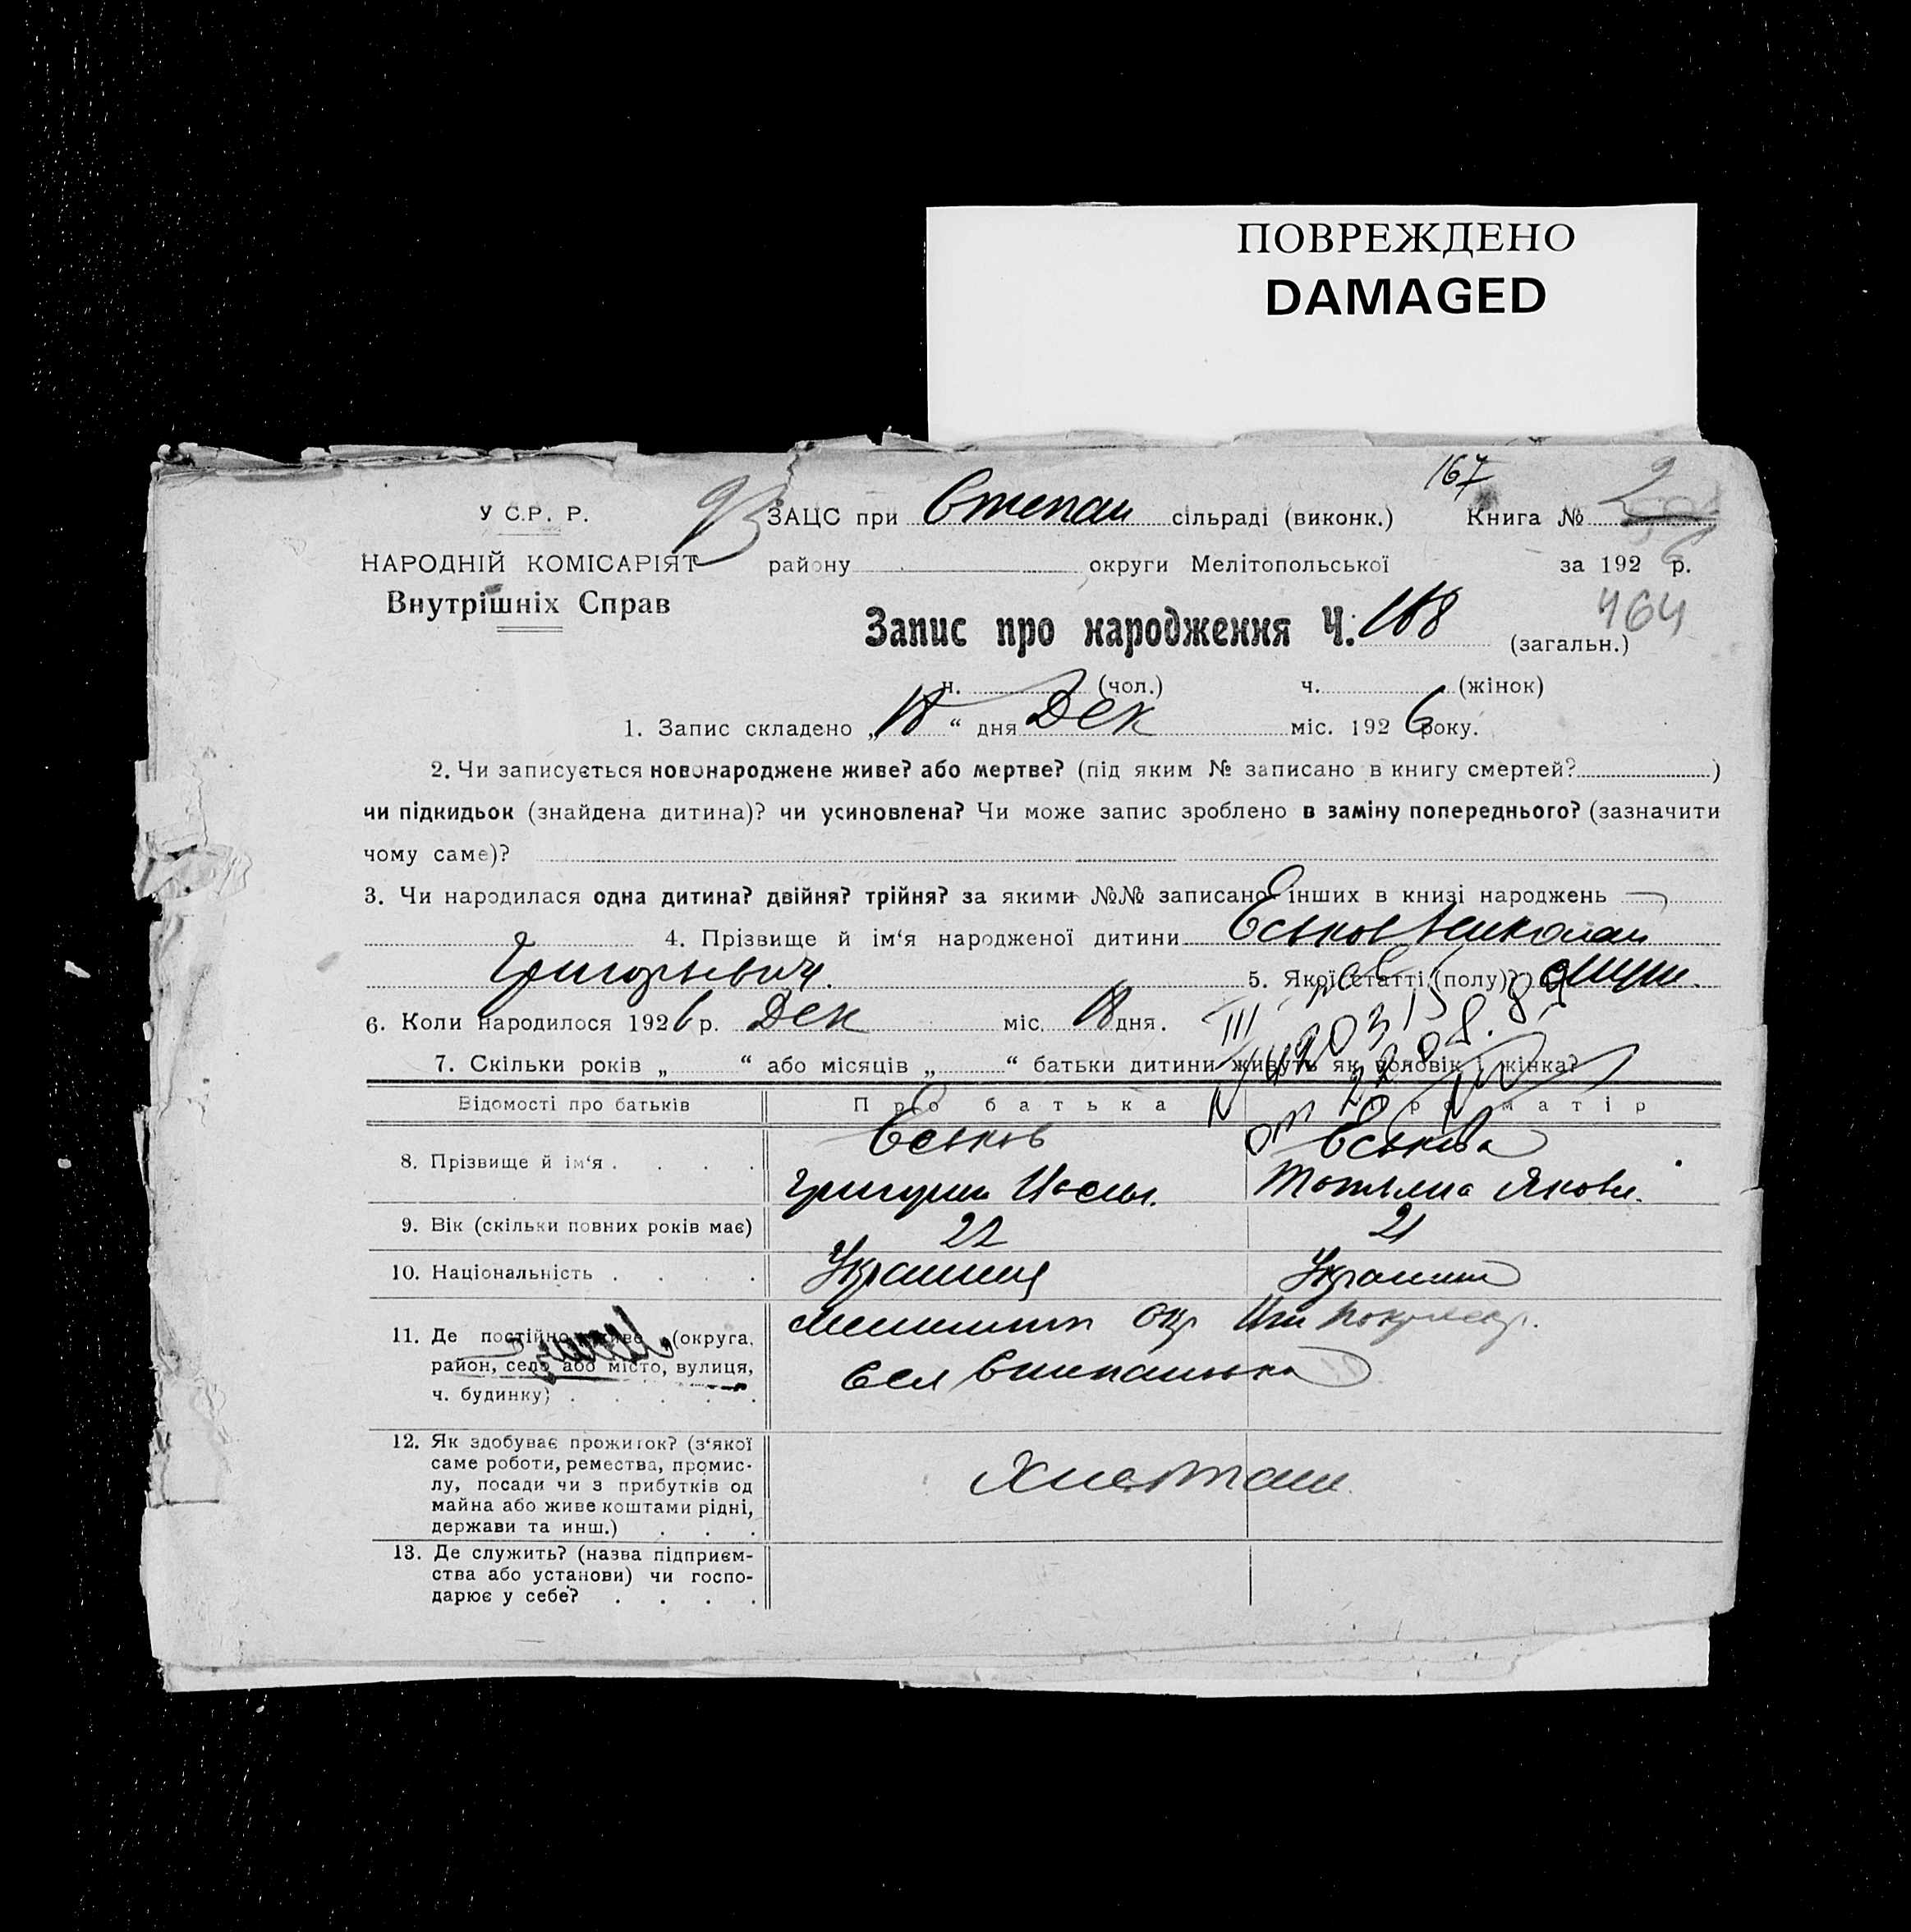 ПОВРЕЖДЕНО
DAMAGED
167
У С.Р. Р.
ЗАЦС при Степан сільраді (виконк.) Книга №
НАРОДНІЙ КОМІСАРІЯТ
району округи Мелітопольської за 192 р.
Внутрішніх Справ
Запис про народження Ч. 168 (загальн.)
464
н. (чол.) ч. (жінок)
1. Запис складено „18“ дня Дек міс. 1926 року.
2. Чи записується новонароджене живе? або мертве? (під яким № записано в книгу смертей? )
чи підкидьок (знайдена дитина)? чи усиновлена? Чи може запис зроблено в заміну попереднього? (зазначити
чому саме)?
3. Чи народилася одна дитина? двійня? трійня? за якими №№ записано інших в книзі народжень
4. Прізвище й ім‘я народженої дитини Еськов Николай
Григорьевич. 5. Якої статті (полу)?
6. Коли народилося 1926 р. Дек міс. 18 дня.
7. Скільки років „ “ або місяців „ “ батьки дитини живуть як чоловік і жінка?
Відомості про батьків Про батька Про матір
8. Прізвище й ім‘я . . . . Еськов Еськова
Григорий Татьяна Яковл.
9. Вік (скільки повних років має) 22 21
10. Національність . . . .
11. Де постійно живе (округа,
район, село або місто, вулиця,
ч. будинку) . . . . .
12. Як здобуває прожиток? (з‘якої
саме роботи, ремества, промис-
лу, посади чи з прибутків од
майна або живе коштами рідні,
держави та инш.) . . .
13. Де служить? (назва підприєм-
ства або установи) чи госпо-
дарює у себе? . . . .